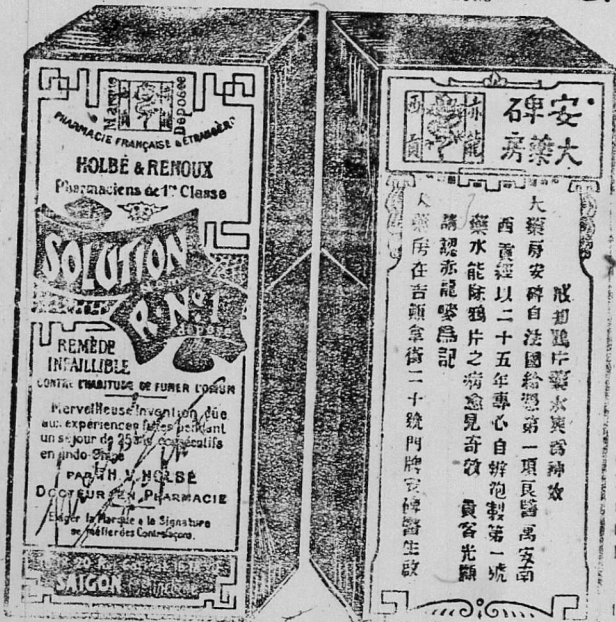 Marque Deposée
PHARMACIE FRANÇAISE & ÉTRANGÈRE
HOLBÉ & RENOUX
Pharmaciens de 1re Classe
SOLUTION
R. No 1
déposé
REMÈDE
INFAILLIBLE
CONTRE L'HABITUDE DE FUMER L'OPIUM
Merveilleuse invention due
aux expériences faites pendant
un séjour de 25 ans consécutifs
en Indo-Chine
PAR TH. V. HOLBÉ
DOCTEUR EN PHARMACIE
Exiger la Marque & la Signature
se méfier des Contrefaçons.
SAIGON
安碑
大藥房
赤龍
西貢
戒初鴉片藥水興酒神效
大藥房安碑自法國給憑第一項良醫寓安南
西貢經以二十五年專心自辦泡製第一號
藥水能除鴉片之病愈見奇效 貴客光顧
請認赤龍嘜爲記
大藥房在吉 拿街二十號門牌安碑醫生啟